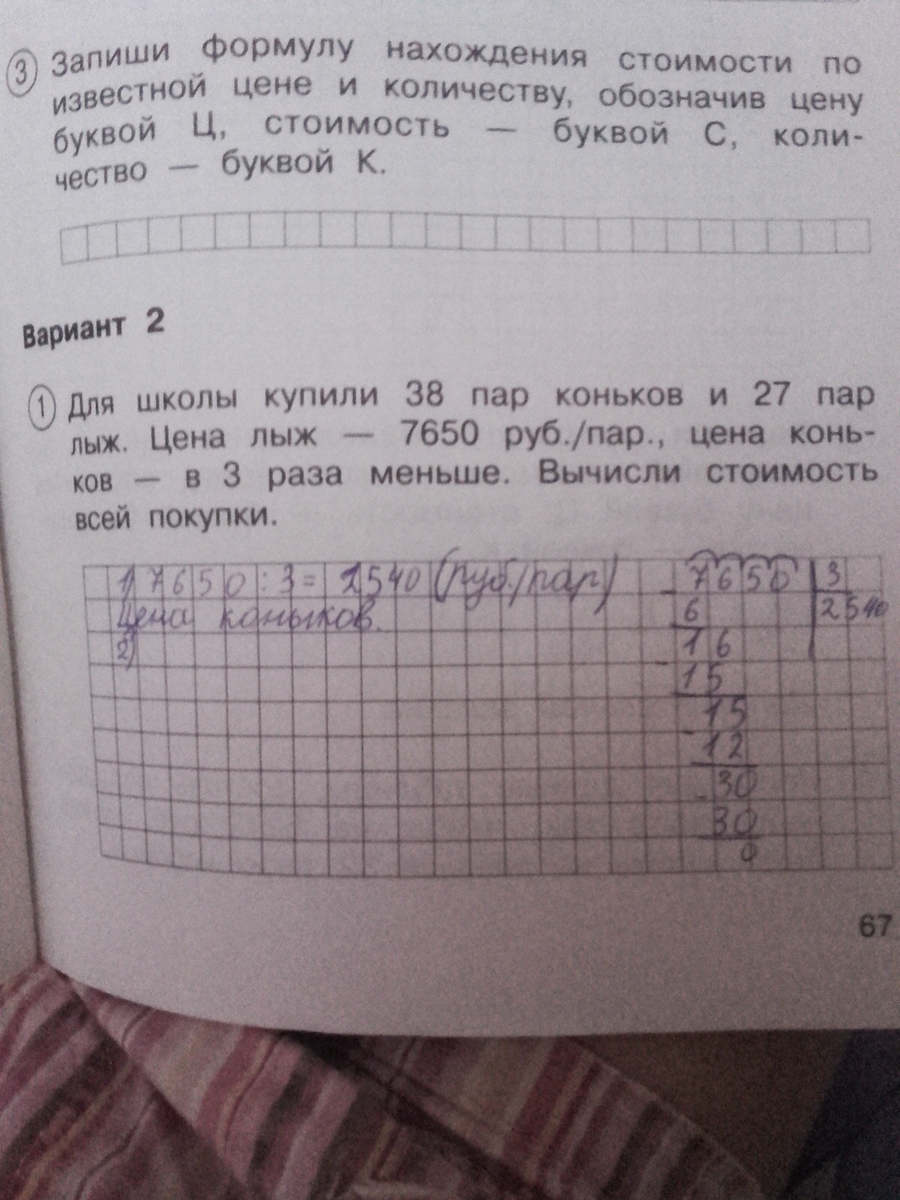 3 Запиши формулу нахождения стоимости по
известной цене и количеству, обозначив цену
буквой Ц, стоимость — буквой С, коли-
чество — буквой К.
Вариант 2
1 Для школы купили 38 пар коньков и 27 пар
лыж. Цена лыж — 7650 руб./пар., цена конь-
ков — в 3 раза меньше. Вычисли стоимость
всей покупки.
1) 7650 : 3 = 2540 (руб./пар)
Цена коньков.
2)
- 7650 | 3
6 | 2540
- 16
15
- 15
12
- 30
30
0
67